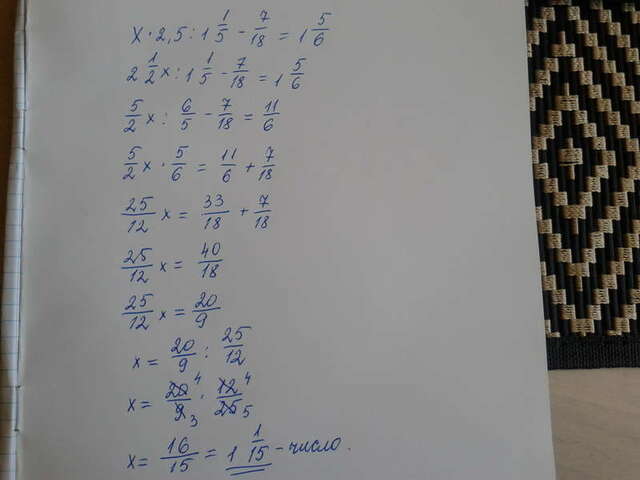 x · 2,5 : 1 1/5 - 7/18 = 1 5/6
2 1/2 x : 1 1/5 - 7/18 = 1 5/6
5/2 x : 6/5 - 7/18 = 11/6
5/2 x · 5/6 = 11/6 + 7/18
25/12 x = 33/18 + 7/18
25/12 x = 40/18
25/12 x = 20/9
x = 20/9 : 25/12
x = 20 4/9 3 · 12 4/25 5
x = 16/15 = 1 1/15 - число.